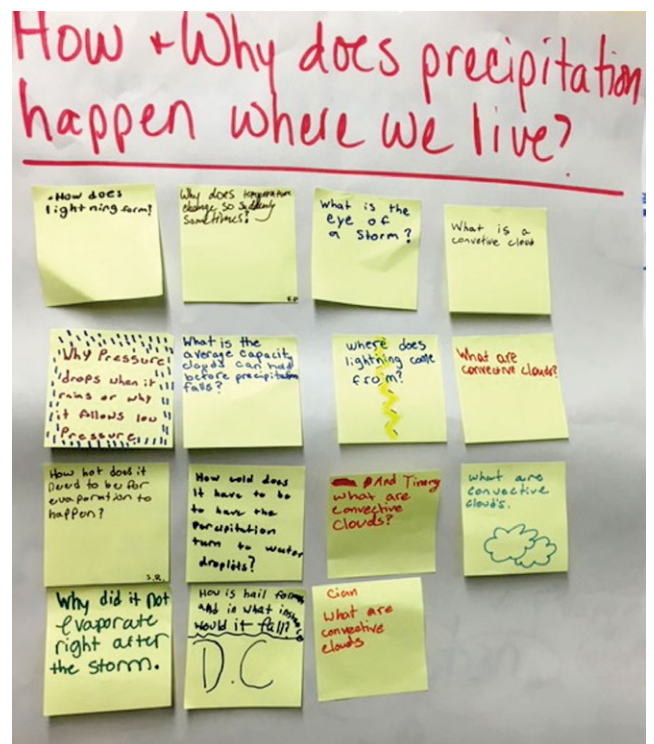 How + Why does precipitation
happen where we live?
How does
lightning form?
Why does temperature
change so suddenly
sometimes?
What is the
eye of
a storm?
What is a
convetive cloud
Why Pressure
drops when it
rains or why
it follows low
Pressure
What is the
average capacity
clouds can hold
before precipitation
falls?
where does
lightning come
from?
What are
convective clouds?
How hot does it
need to be for
evaporation to
happen?
S.R.
How cold does
it have to be
to have the
percipitation
turn to water
droplits?
And Timmy
what are
convective
clouds?
what are
convective
clouds.
Why did it not
evaporate
right after
the storm.
How is hail formed
and in what
would it fall?
D.C
Cian
What are
convective
clouds